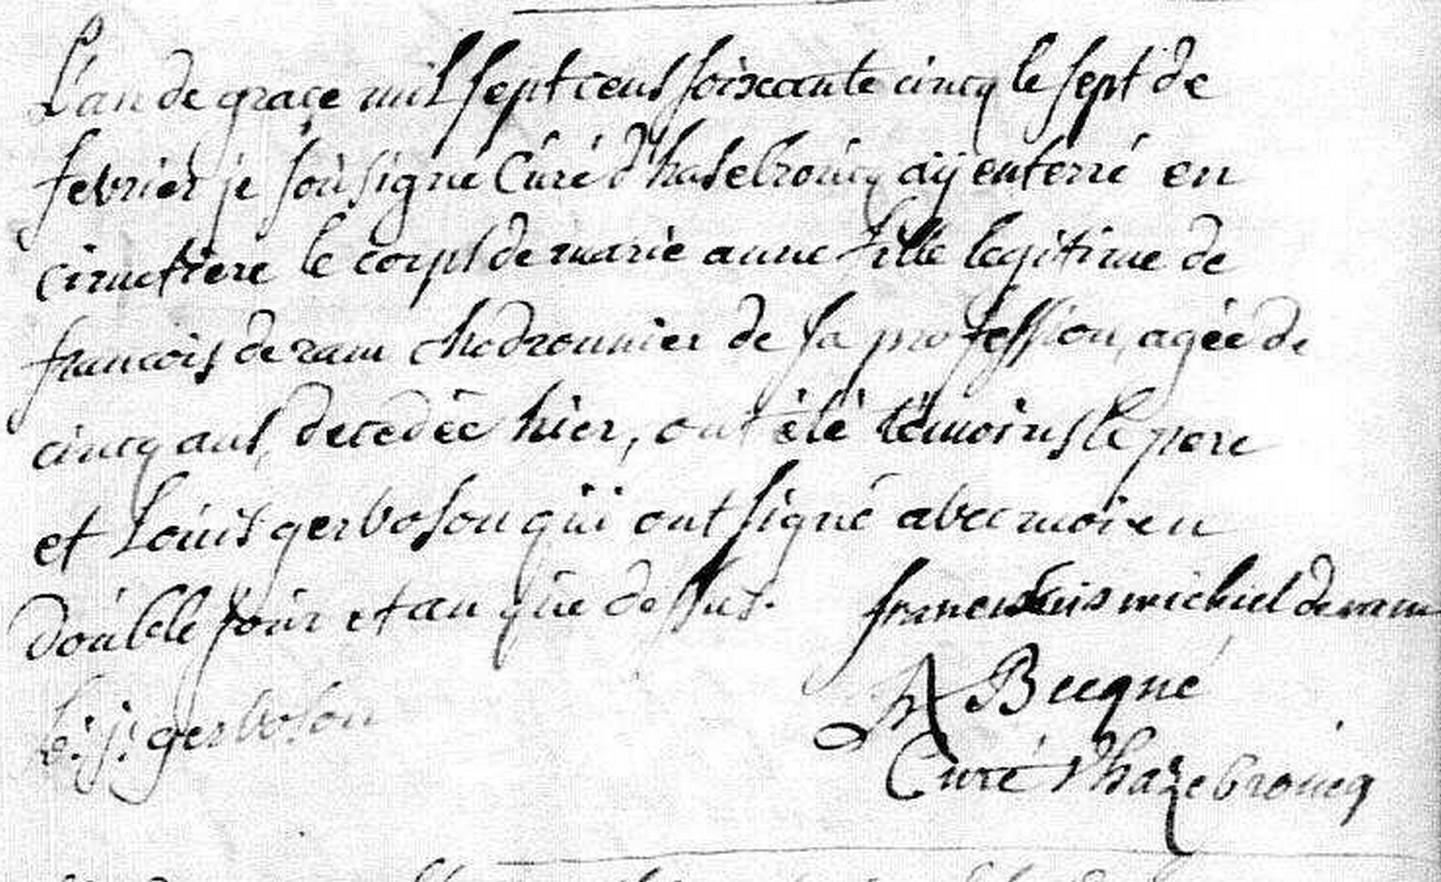 L'an de grace mil sept cens soixcante cincq le sept de
febvrier je soùsigné Cùré d'hasebroùcq aÿ enterré en
cimetiere le corps de marie anne fille legitime de
francois de ram chodronnier de sa profession, agée de
cincq ans, decedée hier, ont été témoins le pere
et Loùis gerboson qùi ont signé avec moi en
doùble joùr et an qùe dessus. franciscùis michiel de ram
L: j: gerboson
Becqué
Cùré d'hazebroùcq